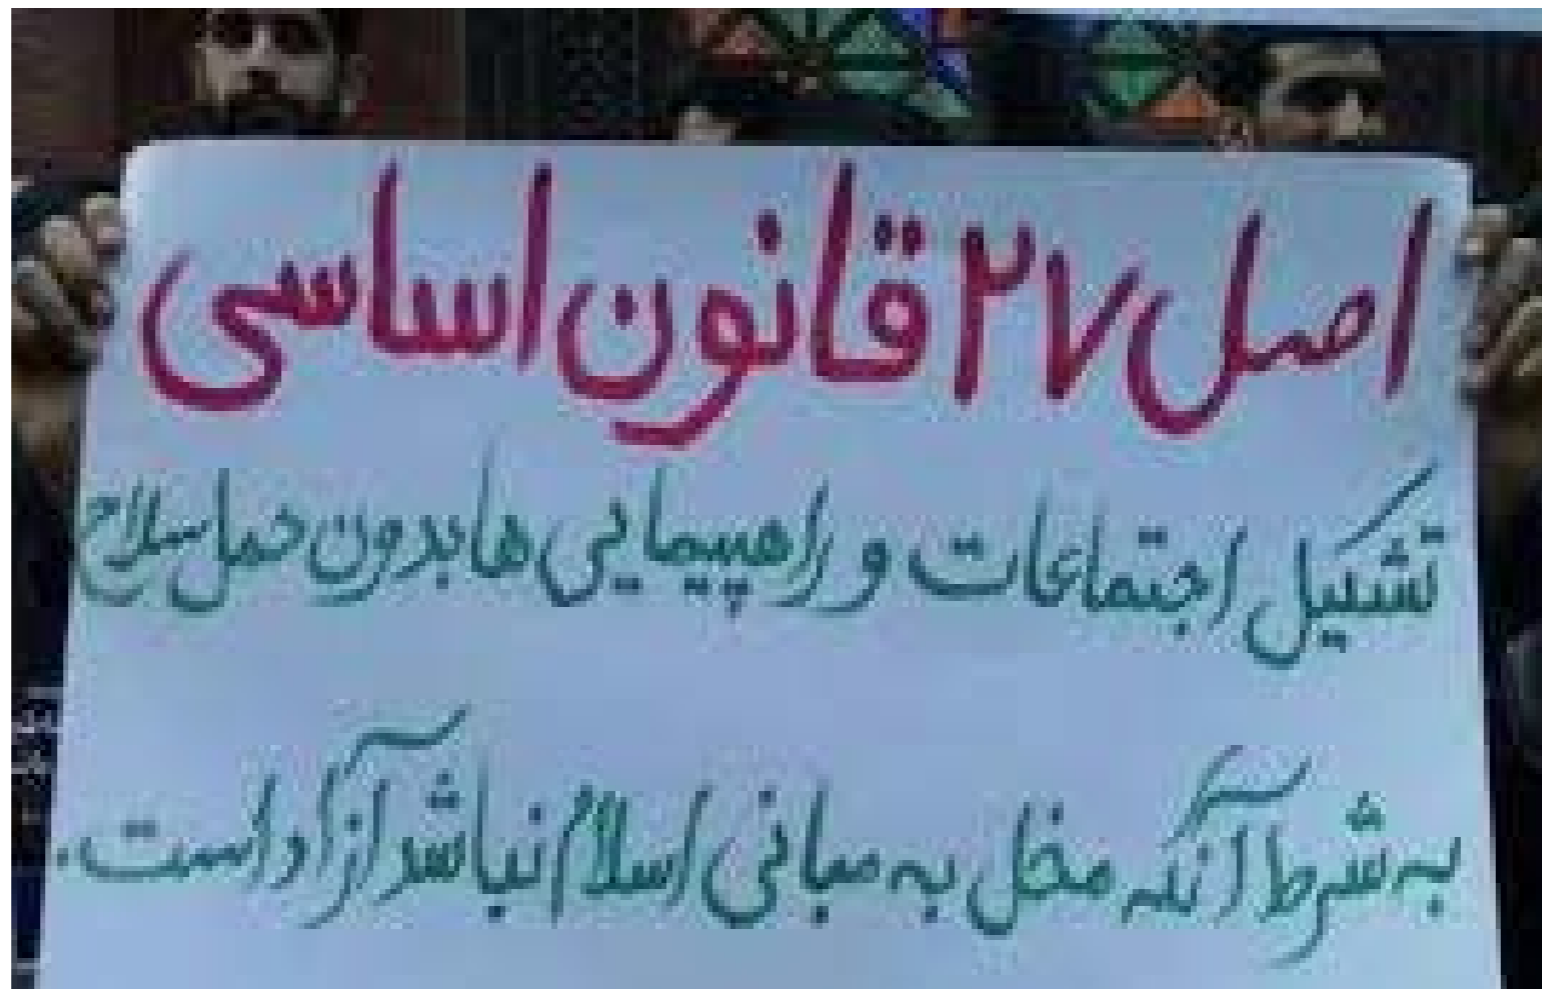 اصل ۲۷ قانون اساسی
تشکیل اجتماعات و راهپیمایی ها بدون حمل سلاح
به شرط آنکه مخل به مبانی اسلام نباشد آزاد است.